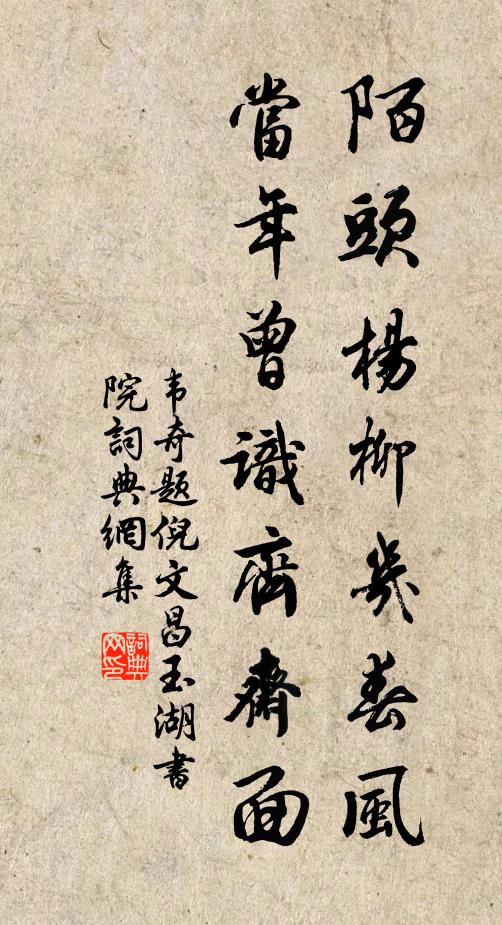 陌頭楊柳幾春風
當年曾識齊齋面
韦奇题倪文昌玉湖書
院詞典網集
詞典
网印